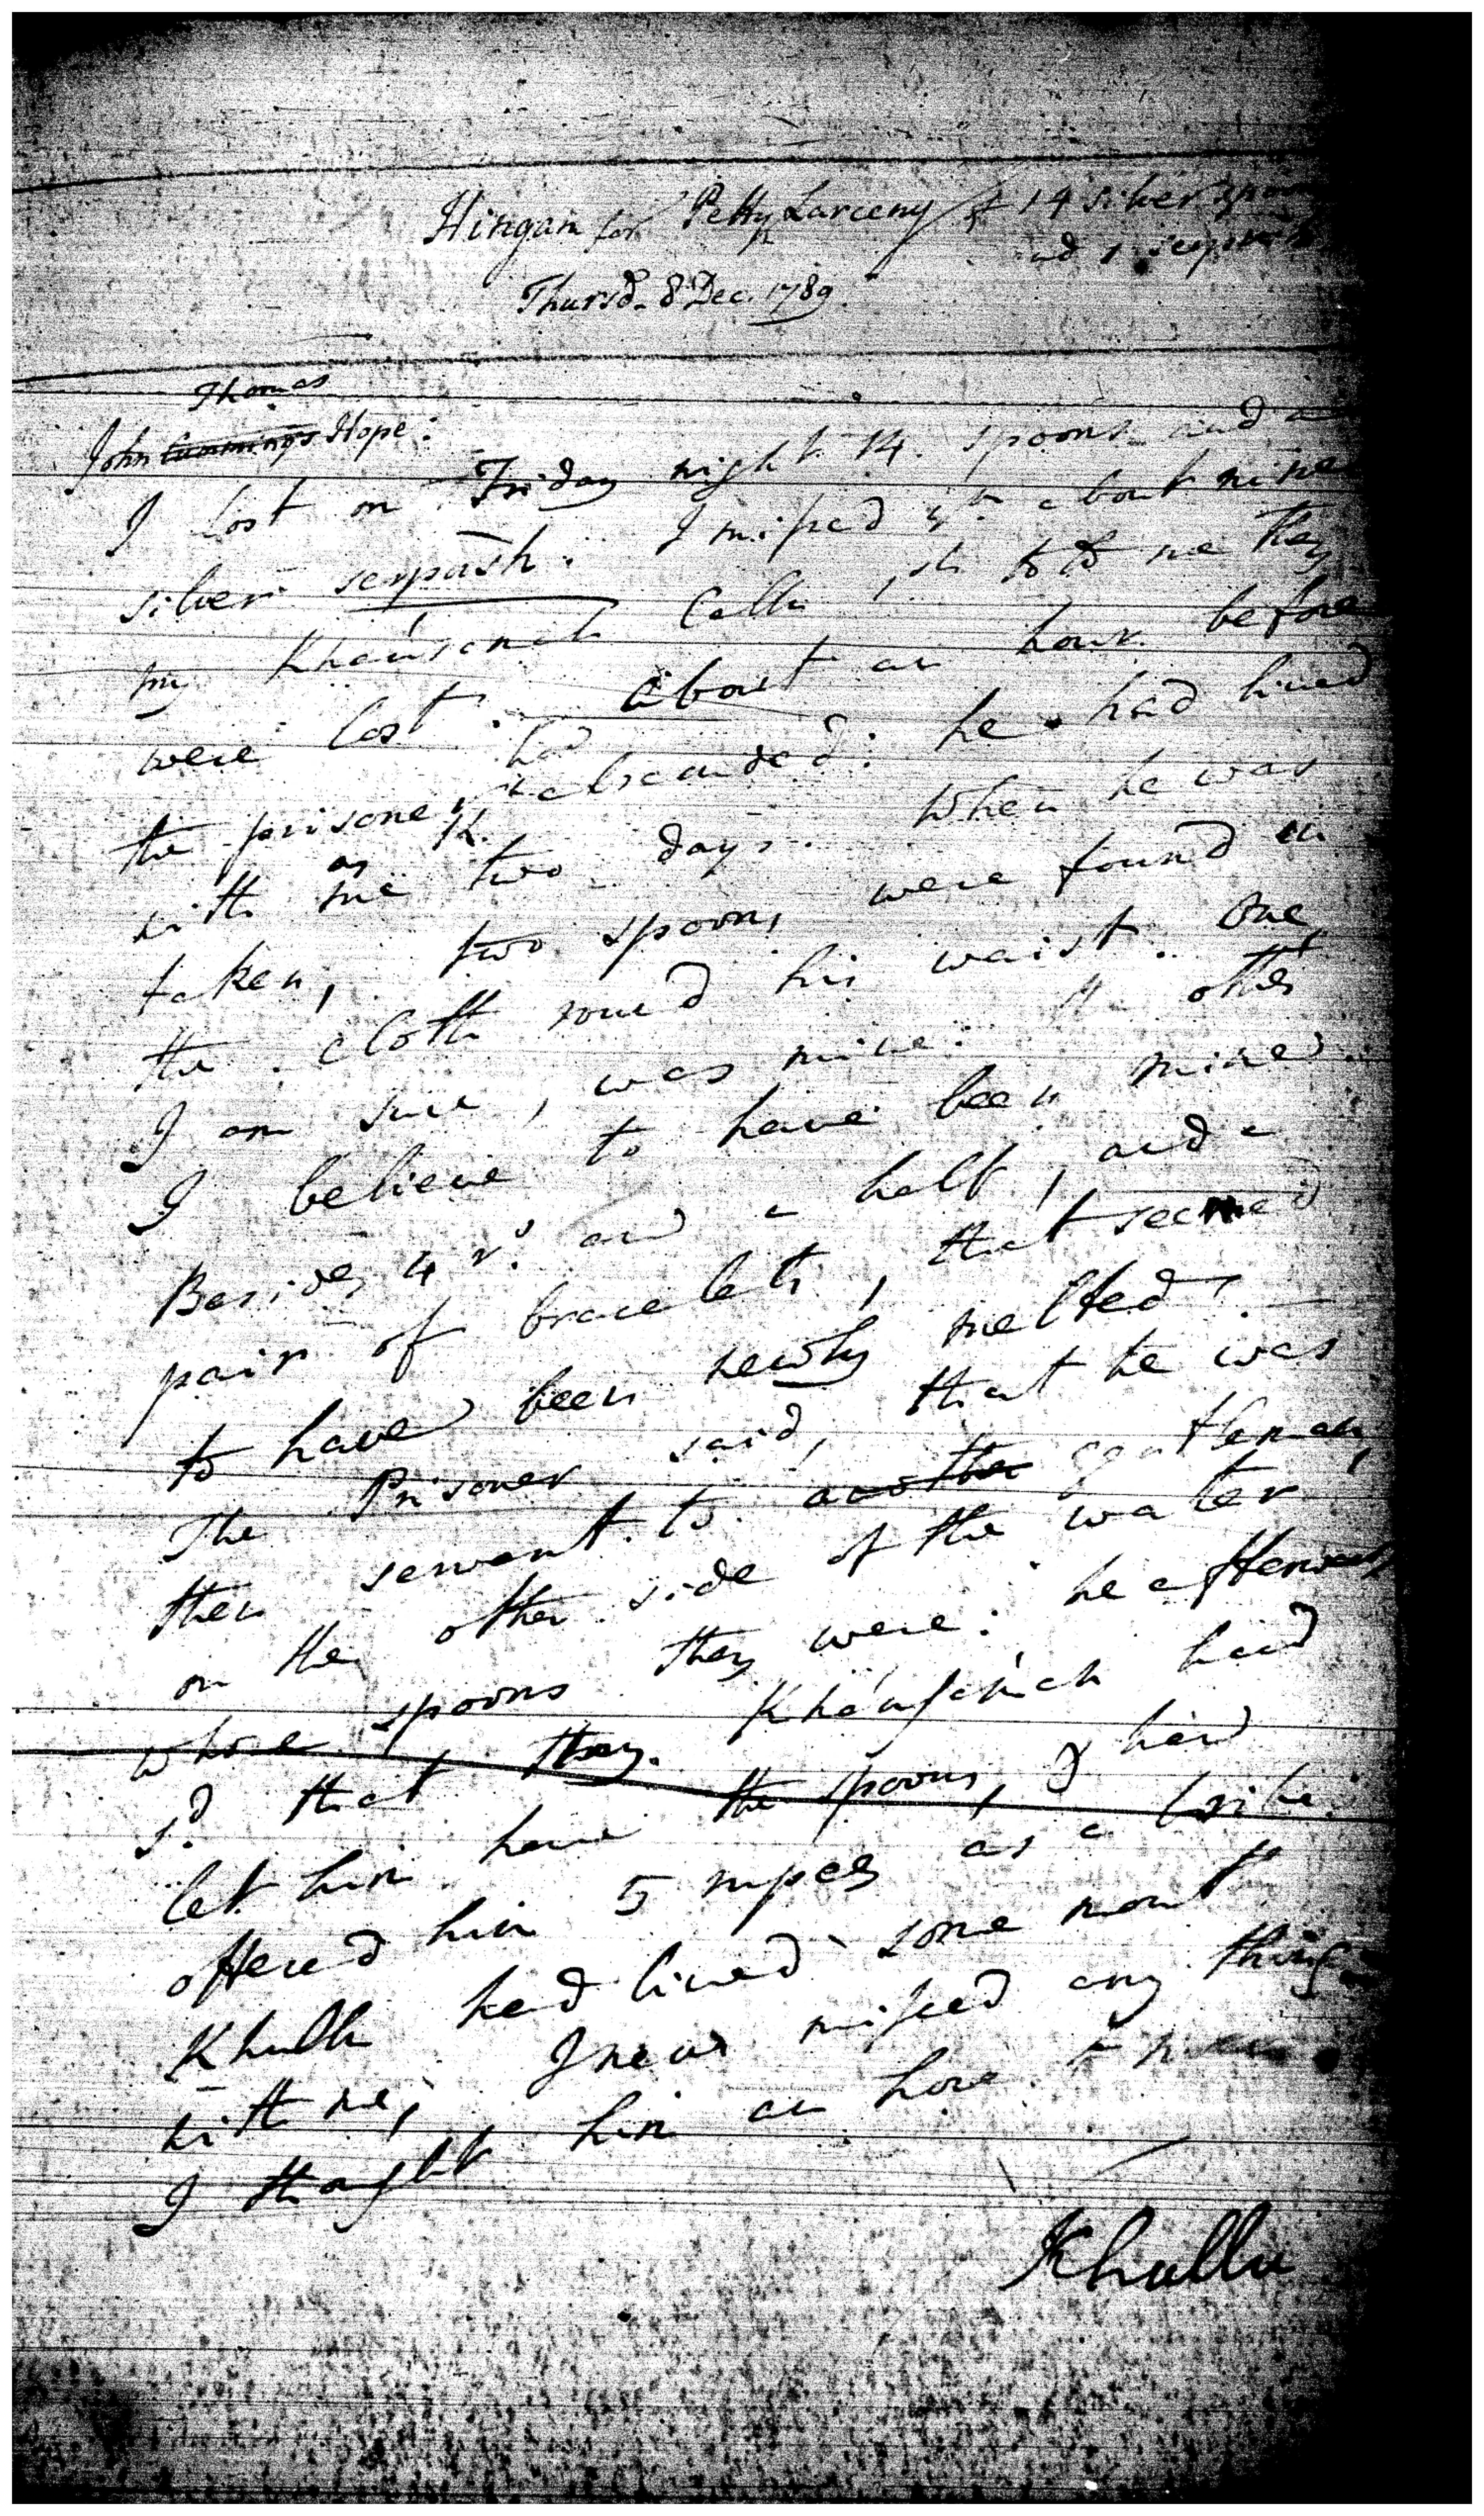 Hingan for Petty Larceny of 14 silver spoons
and 1 serpush
Thursd. 8 Dec. 1789.
Thomas
John Cummings Hope:
I lost on Friday night 14. spoons and a
silver serpash. I mißed ym about nine
my Khánsamah Callu, sd. told me they
were lost. About an hour before
the prisoner had absconded: he had lived
with me as two days. When he was
taken, two spoons were found in
the cloth round his waist. One
I am sure, was mine: ye other
I believe to have been mine.
Besides 4 rs. and a half, and a
pair of bracelets, that seemed
to have been newly melted.
The Prisoner said, that he was
then servant to another gentleman,
on the other side of the water
whose spoons they were: he afterwards
sd. that they. Khánsamah had
let him have the spoons, & had
offered him 5 rupees as a bribe.
Khullu had lived some months
with me, I never mißed any thing
I thought him an hon.
Khullu